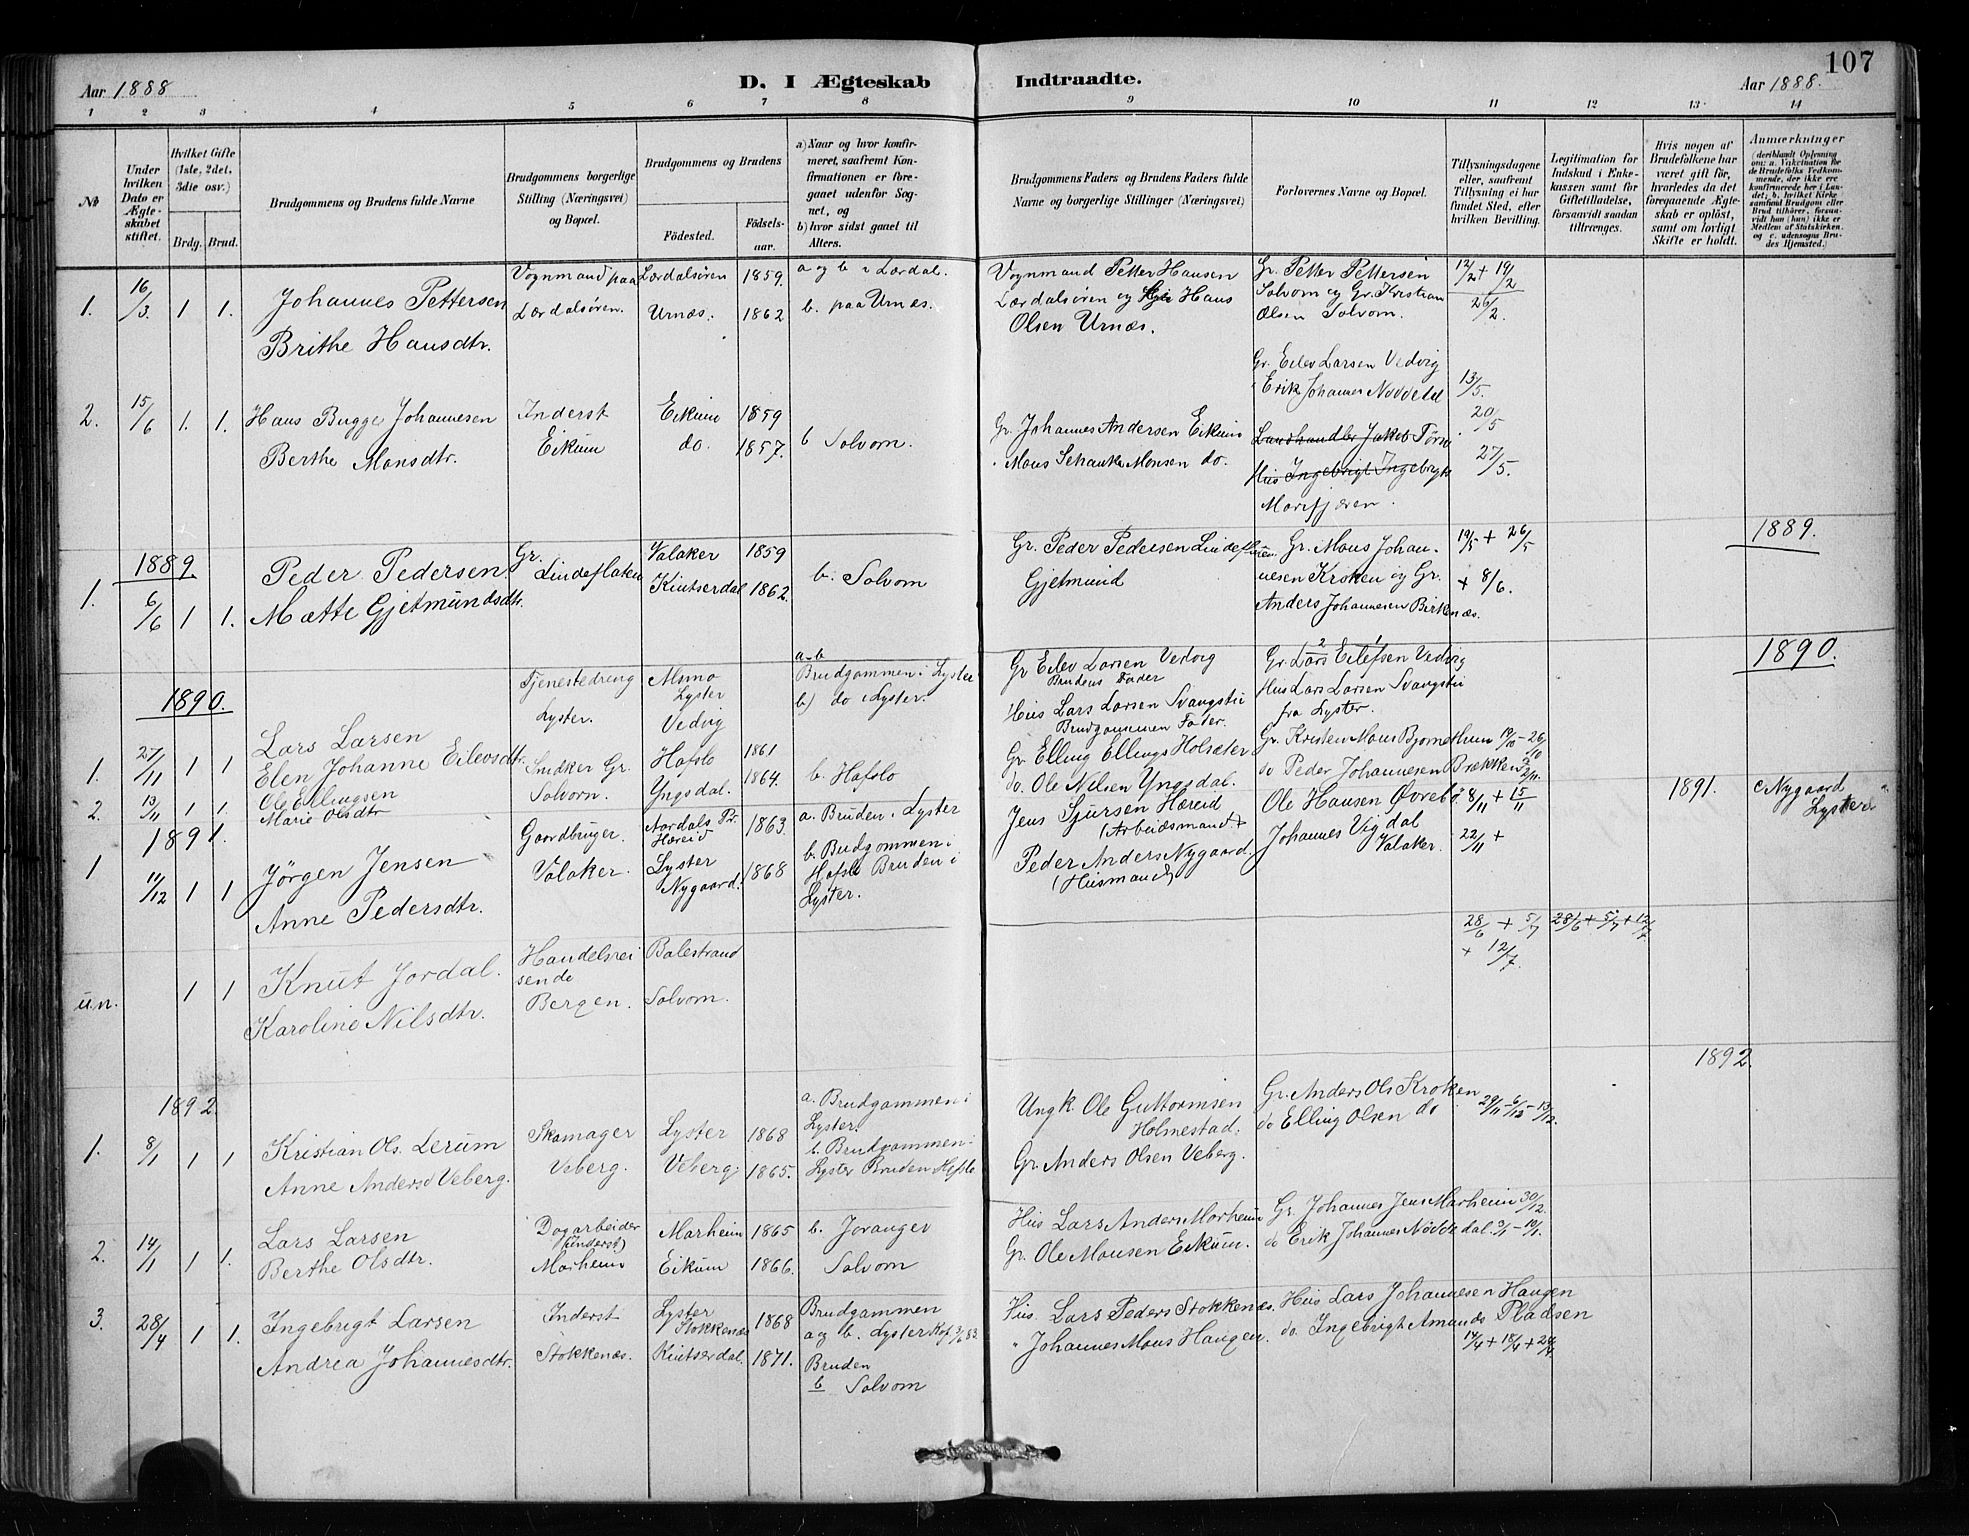 107
Aar 1888
D. I Ægteskab Indtraadte.
Aar 1888.
1 2 3 4 5 6 7 8 9 10 11 12 13 14
No
Under hvilken Dato er Ægteskabet stiftet.
Hvilket Gifte (1ste, 2det, 3die osv.)
Brdg. Brud.
Brudgommens og Brudens fulde Navne
Brudgommens borgerlige Stilling (Næringsvei) og Bopæl.
Brudgommens og Brudens
Födested.
Födselsaar.
a) Naar og hvor konfirmeret, saafremt Konfirmationen er foregaaet udenfor Sognet, og
b) hvor sidst gaaet til Alters.
Brudgommens Faders og Brudens Faders fulde Navne og borgerlige Stillinger (Næringsvei)
Forlovernes Navne og Bopæl.
Tillysningsdagene eller, saafremt Tillysning ei har fundet Sted, efter hvilken Bevilling.
Legitimation for Indskud i Enkekassen samt for Giftetilladelse, forsaavidt saadan tiltrænges.
Hvis nogen af Brudefolkene har været gift før, hvorledes da det foregaaende Ægteskab er oplöst, samt om lovligt Skifte er holdt.
Anmærkninger
(deriblandt Oplysning om: a. Vakcination for de Brudefolks Vedkommende, der ikke ere konfirmerede her i Landet, b. hvilket Kirkesamfund Brudgom eller Brud tilhörer, forsaavidt han (hun) ikke er Medlem af Statskirken, og c. udensogns Brudes Hjemsted.)
1. 16/3. 1 1.
Johannes Pettersen
Brithe Hansdtr.
Vognmand paa
Lærdalsøren.
Lærdalsören 1859.
Urnæs. 1862
a og b i Lærdal.
b. paa Urnæs.
Vognmand Petter Hansen
Lærdalsören og Hans
Olsen Urnæs.
Gr. Petter Pettersen
Solvorn og Gr. Kristian
Olsen Solvorn.
12/2 + 19/2
26/2.
2. 15/6 1. 1.
Hans Bugge Johannesen
Berthe Monsdtr.
Inderst
Eikum
Eikum 1859
do. 1857.
b Solvorn.
Gr. Johannes Andersen Eikum
" Mons Schanke Monsen do.
Gr. Eilev Larsen Vedvig
" Erik Johannes Nøddedal
Landhandler Jakob
Hus Ingebrigt
Marifjæren.
13/5.
20/5
27/5.
1889
1889.
1. 6/6 1 1.
Peder Pedersen
Mætte Gjetmundsdtr.
Gr.
Lindeflaten
Valaker 1859
Kintserdal 1862.
b. Solvorn
Gr. Peder Pedersen
Gjetmund
Gr. Mons Johannesen
Kroken og Gr.
Anders Johannesen Birkenæs.
19/5 + 26/5
+ 8/6.
1890.
1890.
1. 27/11 1 1
Lars Larsen
Elen Johanne Eilevsdtr.
Tjenestedreng
Lyster.
Lyster
Vedvig
a-b
Brudgommen i Lyster
b) do i Lyster.
Gr. Eilev Larsen Vedvig
Brudens Fader
Hus Lars Larsen Svangstu
Brudgommen Fader.
Gr. Lars Eilefsen Vedvig
Hus Lars Larsen Svangstu
fra Lyster.
2. 13/11 1 1.
Ole Ellingsen
Marie Olsdtr
Snidker Gr.
Solvorn.
Hafslo 1861
Yngsdal. 1864.
b. Hafslo
Gr. Elling Ellings Holsæter
do. Ole Nilsen Yngsdal.
Gr. Kristen Mons Bjornethun
do Peder Johannesen Brækken
19/10 - 26/10
2/11.
1891.
1891.
1 11/12 1 1
Jørgen Jensen
Anne Pedersdtr.
Gaardbruger
Valaker.
Aardals Pr. Hæreid 1863.
Lyster Nygaard. 1868
a. Bruden i Lyster
b. Brudgommen i
Hafslo Bruden i
Lyster.
Jens Sjursen Hæreid
(Arbeidsmand)
Peder Anders Nygaard.
(Husmand)
Ole Hansen Øvrebö
Johannes Vigdal
Valaker.
8/11 + 15/11
22/11 +
c Nygaard
Lyster
u.n. 1 1
Knut Jordal.
Karoline Nilsdtr.
Handelsrei
sende
Bergen.
Balestrand
Solvorn.
28/6 + 5/7
+ 12/7.
28/6 + 5/7 + 12/7
1892.
1892
1. 8/1 1 1
Kristian Ols. Lerum
Anne Anders Veberg.
Skomager
Veberg.
Lyster 1868
Veberg. 1865.
a. Brudgommen i
Lyster.
b. Brudgommen i
Lyster Bruden Hafslo
Ungk. Ole Guttormsen
Holmestad.
Gr. Anders Olsen Veberg.
Gr. Anders Ols Kroken
do Elling Olsen do
29/11 - 6/12 - 13/12.
2. 14/1 1 1.
Lars Larsen
Berthe Olsdtr.
Dagarbeider
(Inderst)
Marheim
Marheim 1865
Eikum 1866.
b. Joranger
Solvorn
Hus Lars Anders Marheim
Gr. Ole Monsen Eikum.
Gr. Johannes Jens Marheim
do Erik Johannes Nøddedal.
30/12
3/1 - 10/1.
3. 28/4 1 1.
Ingebrigt Larsen
Andrea Johannesdtr.
Inderst
Stokkenæs.
Lyster
Stokkenæs 1868
Kintserdal. 1871.
Brudgommen
a og b. Lyster Kof 3/6 83
Bruden
b Solvorn
Hus. Lars Peders Stokkenæs.
" Johannes Mons Haugen.
Hus Lars Johannesen Haugen
do. Ingebrigt Amunds Pladsen
17/4 + 18/4 + 24/4